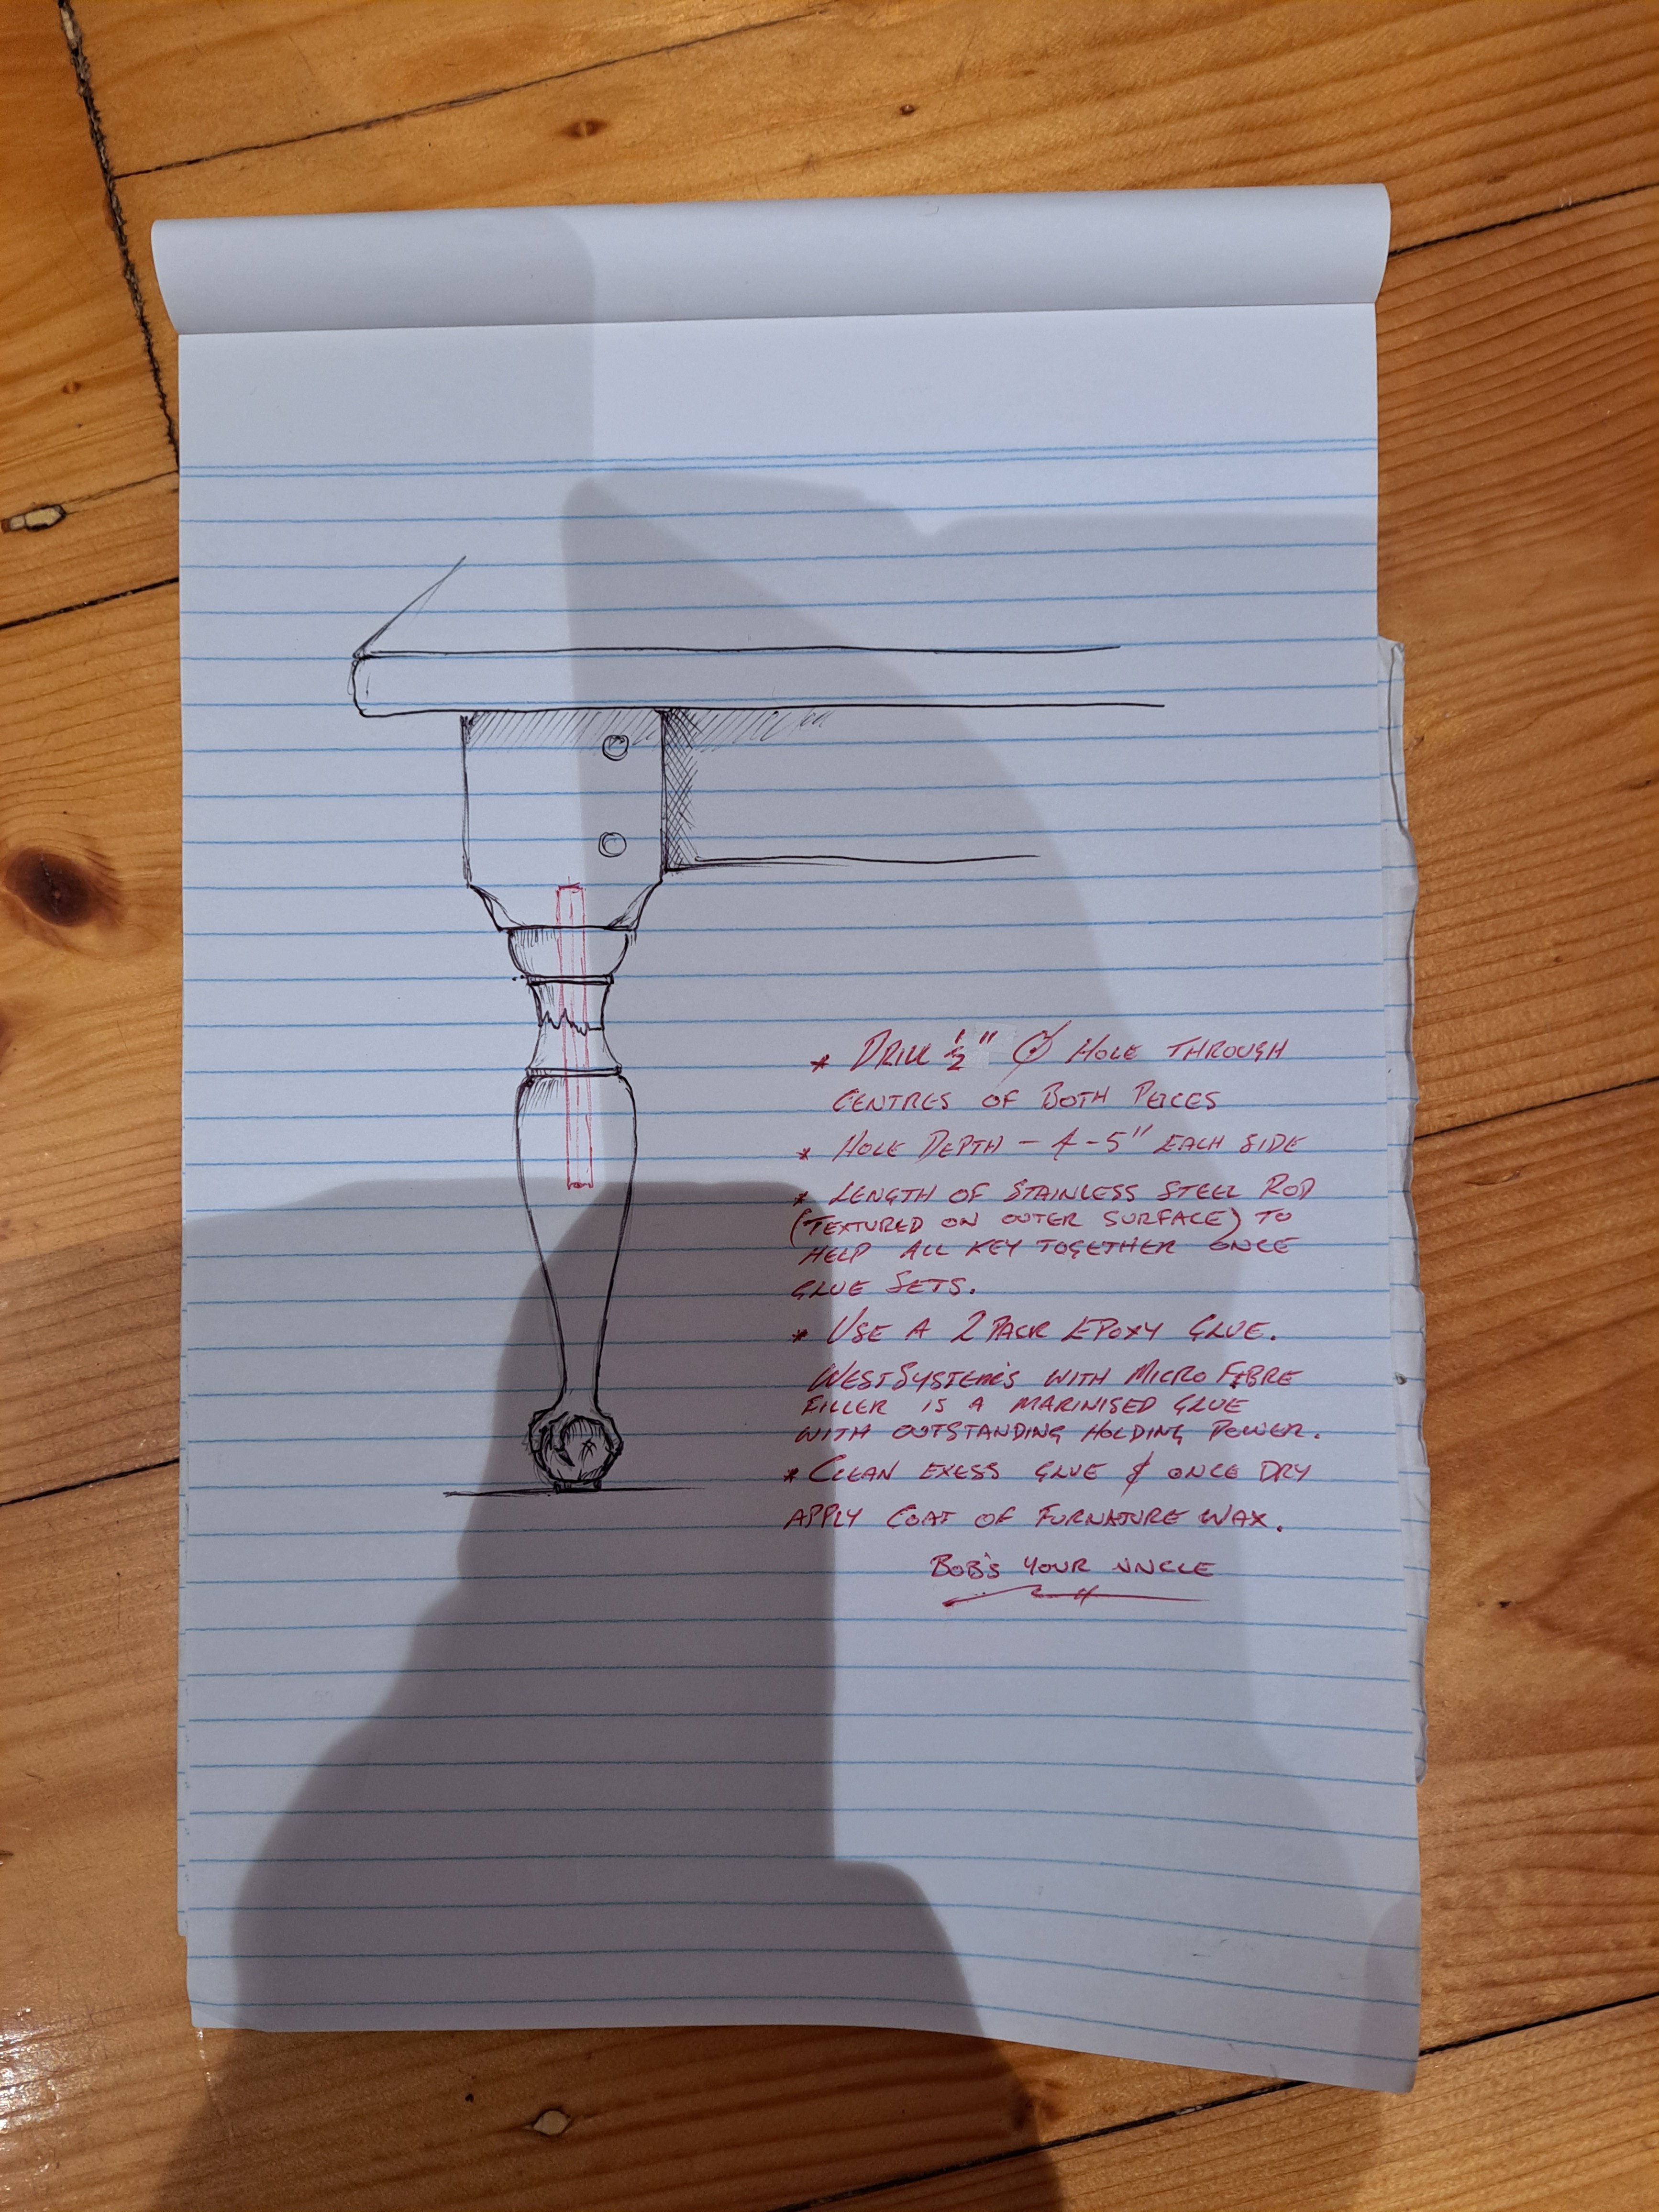 * DRILL 1/2" Ø HOLE THROUGH
CENTRES OF BOTH PEICES
* HOLE DEPTH - 4-5" EACH SIDE
* LENGTH OF STAINLESS STEEL ROD
(TEXTURED ON OUTER SURFACE) TO
HELP ALL KEY TOGETHER ONCE
GLUE SETS.
* USE A 2 PACK EPOXY GLUE.
WESTSYSTEMS WITH MICRO FIBRE
FILLER IS A MARINISED GLUE
WITH OUTSTANDING HOLDING POWER.
* CLEAN EXESS GLUE & ONCE DRY
APPLY COAT OF FURNATURE WAX.
BOB'S YOUR UNCLE